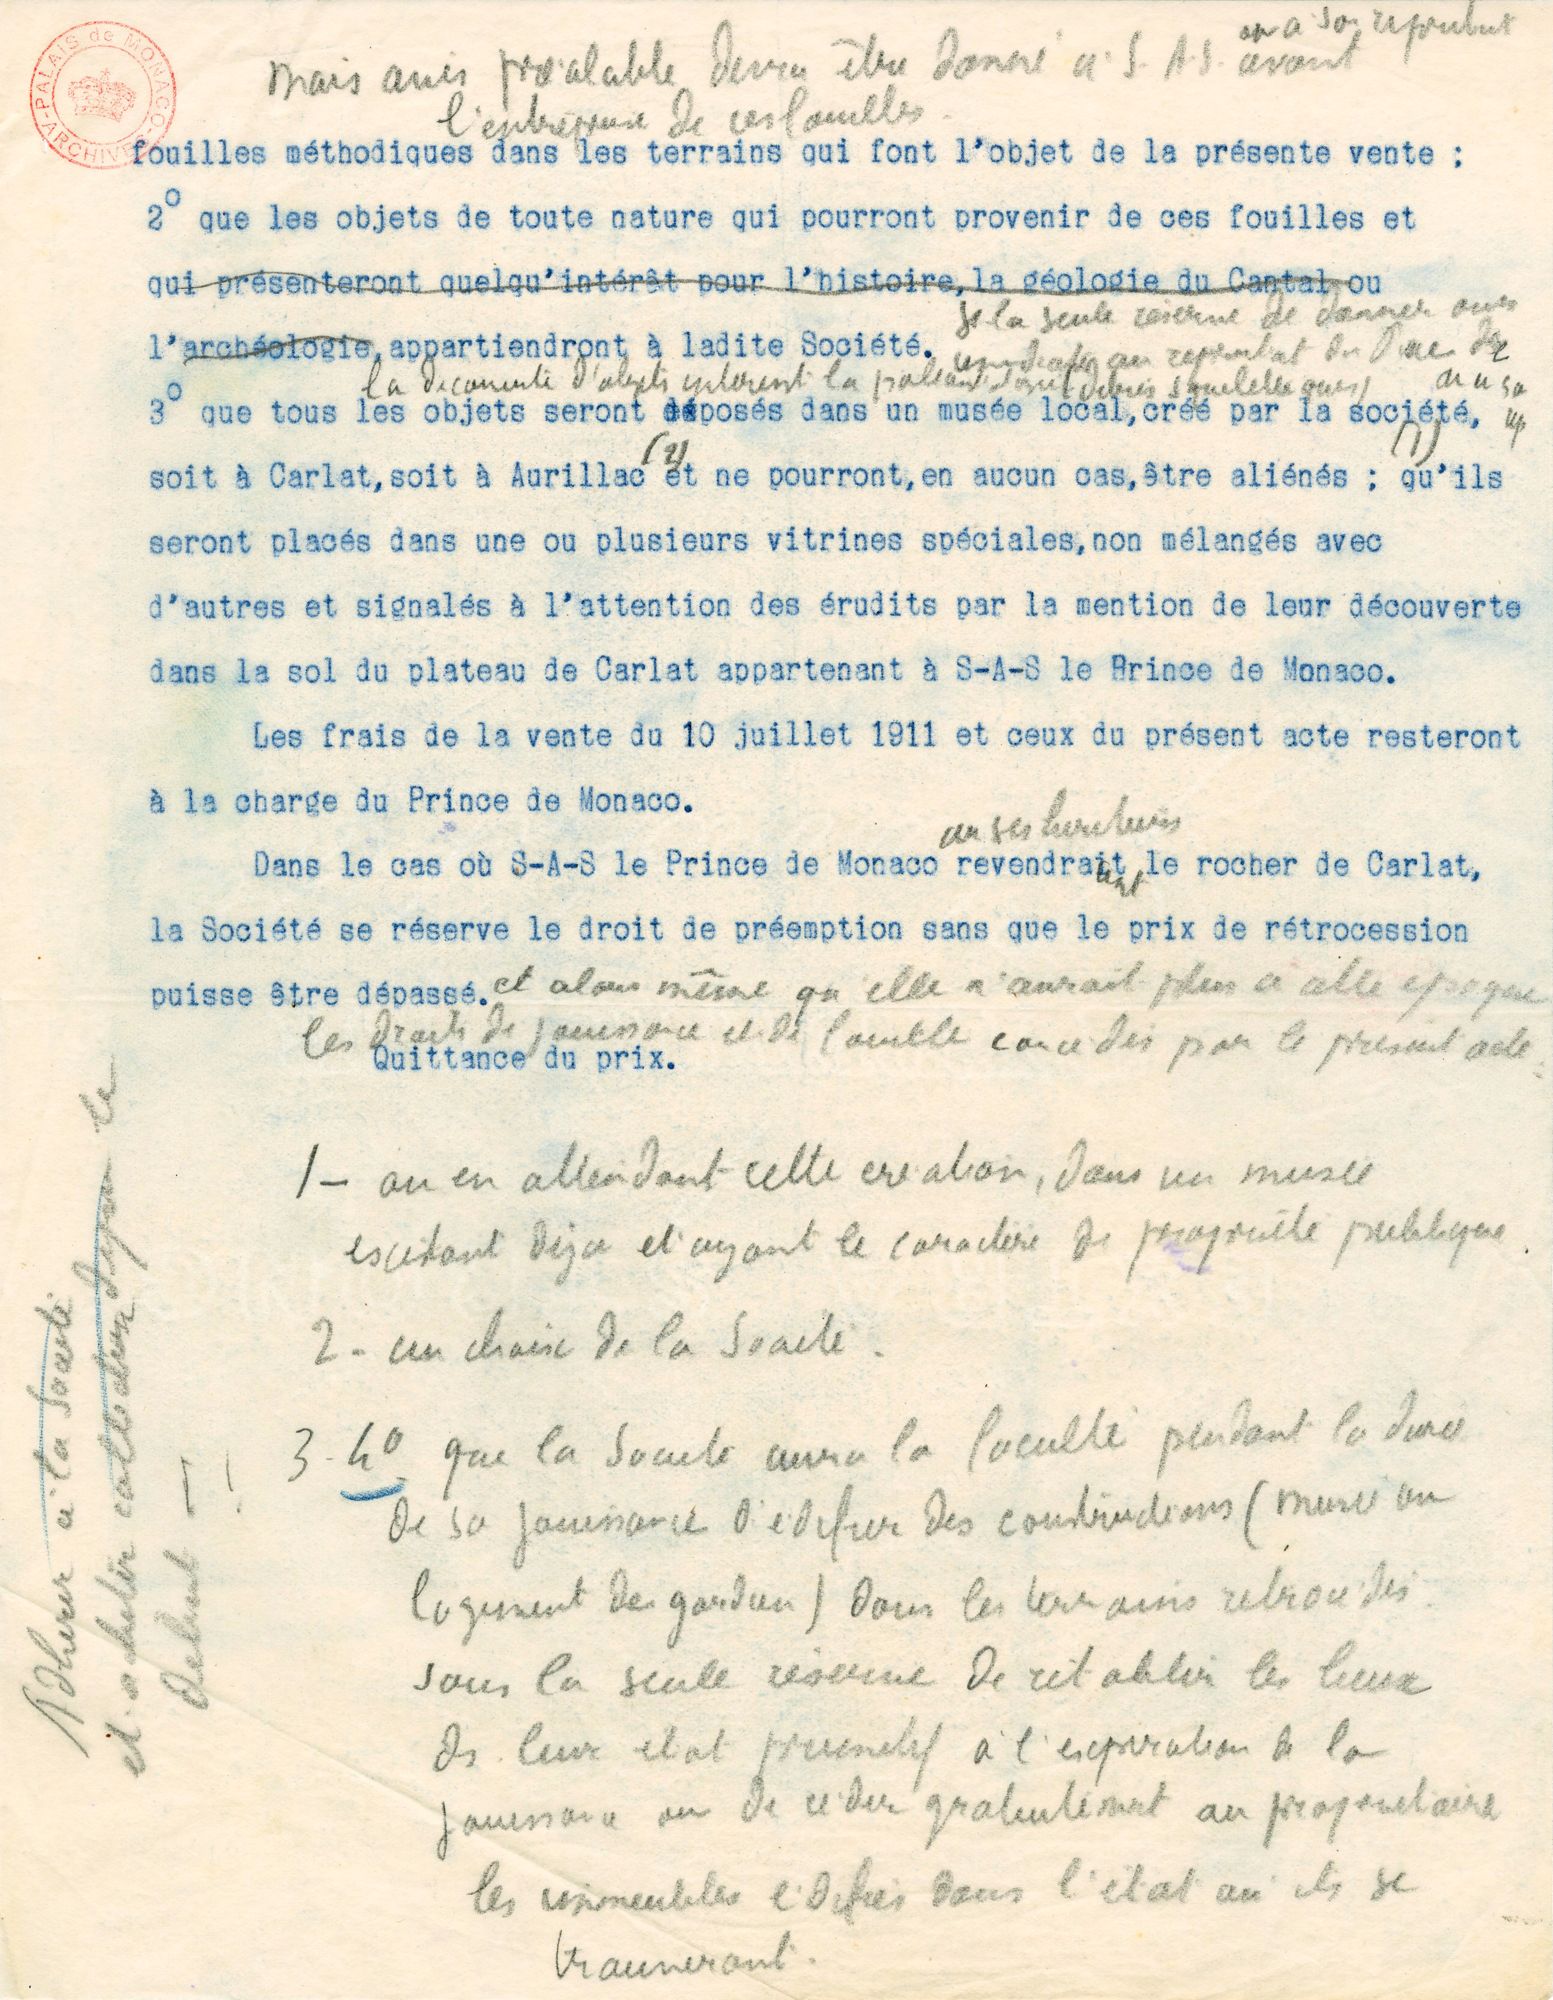 PALAIS de MONACO
ARCHIVES
ou à son représentant
mais avis préalable devra être donné à S. A. S. avant
l'entreprise de ces fouilles.
fouilles méthodiques dans les terrains qui font l'objet de la présente vente ;
2° que les objets de toute nature qui pourront provenir de ces fouilles et
qui présenteront quelqu'intérêt pour l'histoire,la géologie du Cantal ou
l'archéologie,appartiendront à ladite Société.
la seule réserve de donner avis
au représentant du Prince de
la découverte d'objets intéressant la
3° que tous les objets seront déposés dans un musée local,créé par la société,
(2) (1)
soit à Carlat,soit à Aurillac et ne pourront,en aucun cas,être aliénés ; qu'ils
seront placés dans une ou plusieurs vitrines spéciales,non mélangés avec
d'autres et signalés à l'attention des érudits par la mention de leur découverte
dans la sol du plateau de Carlat appartenant à S-A-S le Prince de Monaco.
Les frais de la vente du 10 juillet 1911 et ceux du présent acte resteront
à la charge du Prince de Monaco.
ou ses héritiers
Dans le cas où S-A-S le Prince de Monaco revendrait le rocher de Carlat,
la Société se réserve le droit de préemption sans que le prix de rétrocession
puisse être dépassé. et alors même qu'elle n'aurait plus à cette époque
les droits de jouissance et de fouille concédés par le présent acte.
Quittance du prix.
1 - ou en attendant cette création, dans un musée
existant déjà et ayant le caractère de propriété publique
2 - au choix de la Société.
3 - 4° que la Société aura la faculté pendant la durée
de sa jouissance d'édifier des constructions (musée ou
logement de gardien) dans les terrains rétrocédés
sous la seule réserve de rétablir les lieux
ds leur état primitif à l'expiration de la
jouissance ou de céder gratuitement au propriétaire
les immeubles édifiés dans l'état où ils se
trouveront.
Adherer à la Société
et acheter collections depuis le
debut - !